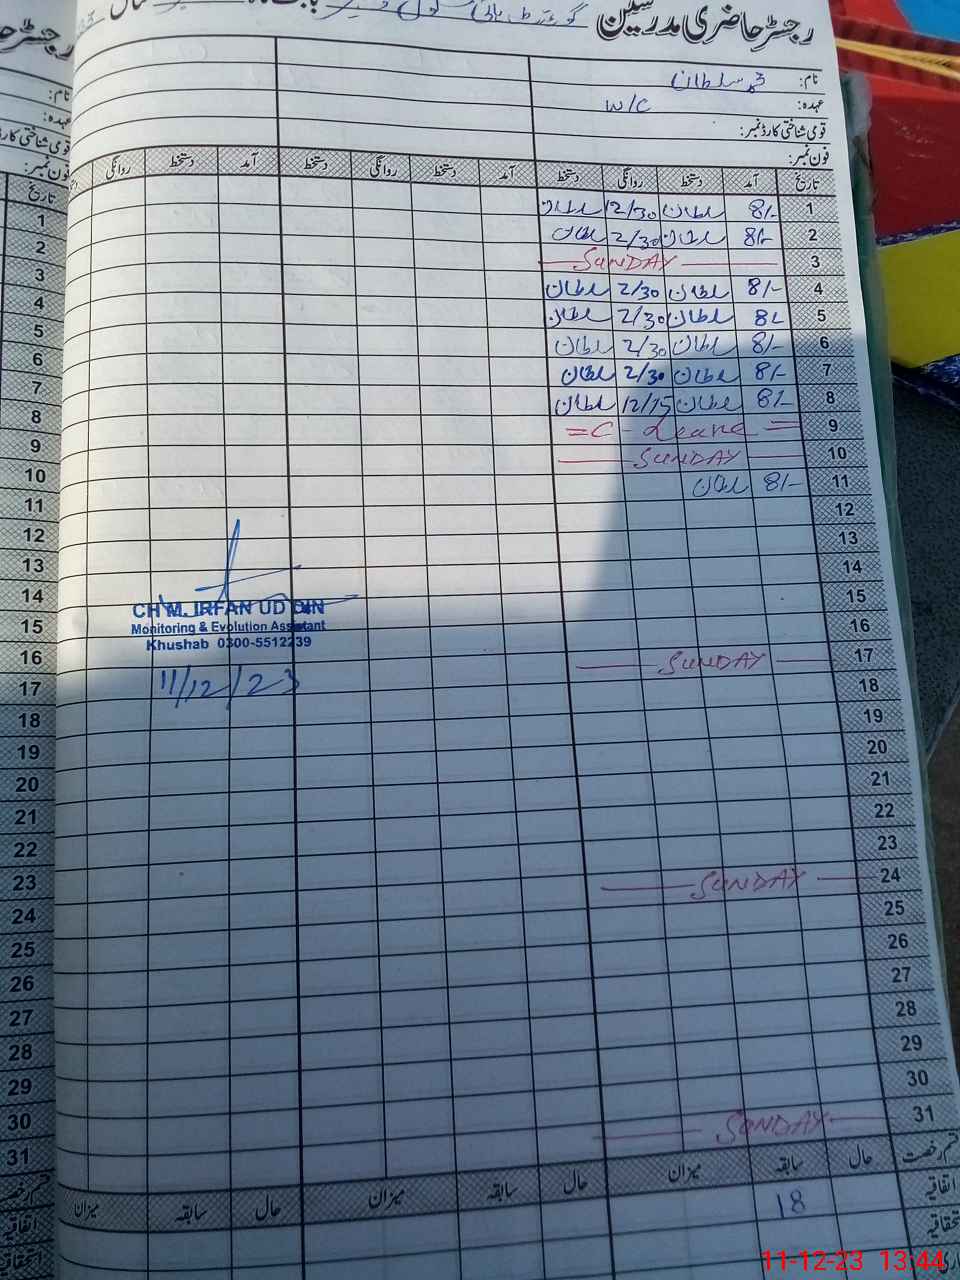 رجسٹر حاضری مدرسین
نام: محمد سلطان
عہدہ: W/C
قومی شناختی کارڈ نمبر:
فون نمبر:
تاریخ آمد دستخط روانگی دستخط آمد دستخط روانگی دستخط آمد دستخط روانگی
1 8/- سلطان 12/30 سلطان
2 8/- سلطان 2/30 سلطان
3 SUNDAY
4 8/- سلطان 2/30 سلطان
5 8/- سلطان 2/30 سلطان
6 8/- سلطان 2/30 سلطان
7 8/- سلطان 2/30 سلطان
8 8/- سلطان 12/15 سلطان
9 = C - Leave =
10 SUNDAY
11 8/- سلطان
12
13
14
15
16
17 SUNDAY
18
19
20
21
22
23
24 SUNDAY
25
26
27
28
29
30
31 SUNDAY
CH M. IRFAN UD DIN
Monitoring & Evolution Assistant
Khushab 0300-5512239
11/12/23
قسم رخصت حال سابقہ میزان حال سابقہ میزان حال سابقہ میزان
اتفاقیہ 18
رجسٹر حا
نام:
عہدہ:
قومی شناختی کارڈ
فون نمبر:
تاریخ
1
2
3
4
5
6
7
8
9
10
11
12
13
14
15
16
17
18
19
20
21
22
23
24
25
26
27
28
29
30
31
قسم رخصت
اتفاقیہ
11-12-23 13:44